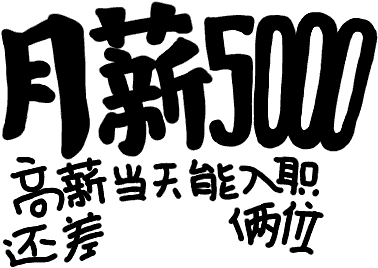 月薪5000
高薪当天能入职
还差 俩位